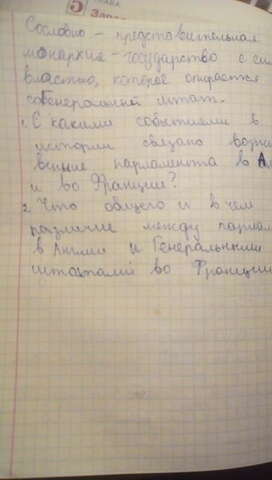 5
Сословно - представительная
монархия - государство с
властью, которое опирается
1. С какими событиями в
истории связано
парламента в
и во Франции?
2. Что общего и в чем
различие между
в Англии и Генеральными
штатами во Франции